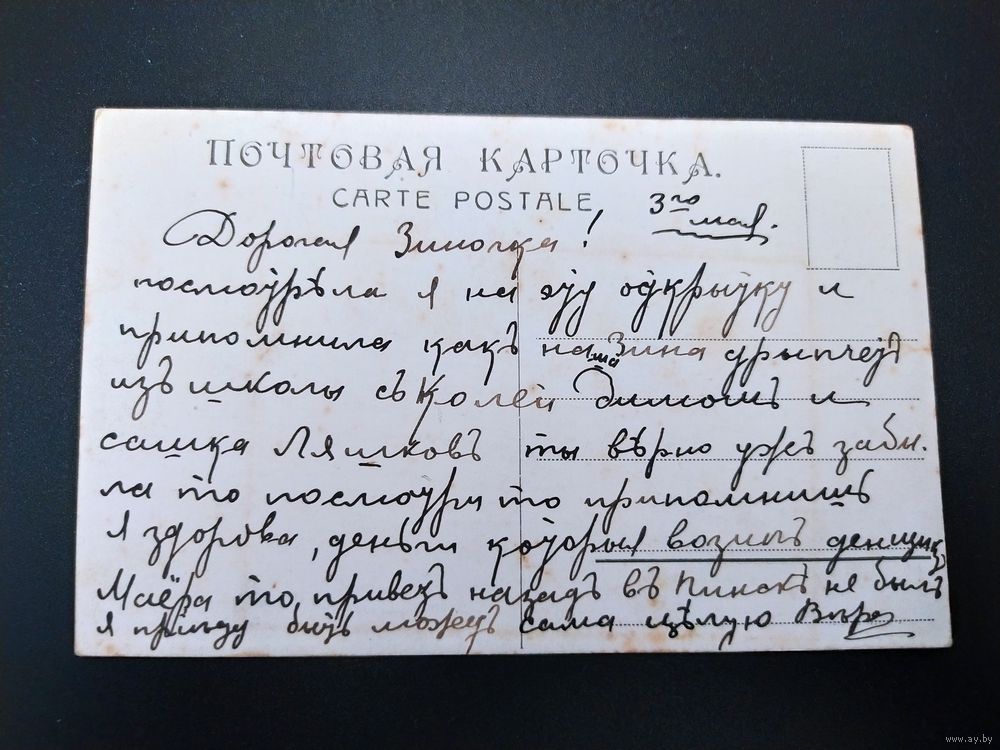 ПОЧТОВАЯ КАРТОЧКА.
CARTE POSTALE
3го мая.
Дорогая Зиночка!
посмотрѣла я на эту открытку и
припомнила какъ наша Зина
изъ школы съ Колей Димомъ и
сашка Ляшковъ ты вѣрно ужъ забы-
ла то посмотри то припомнишь
я здорова, деньги которыя возилъ денщикъ
Маёра то привезъ назадъ въ Пинскѣ не былъ
я приѣду быть можетъ сама цѣлую Вѣра
www.ay.by